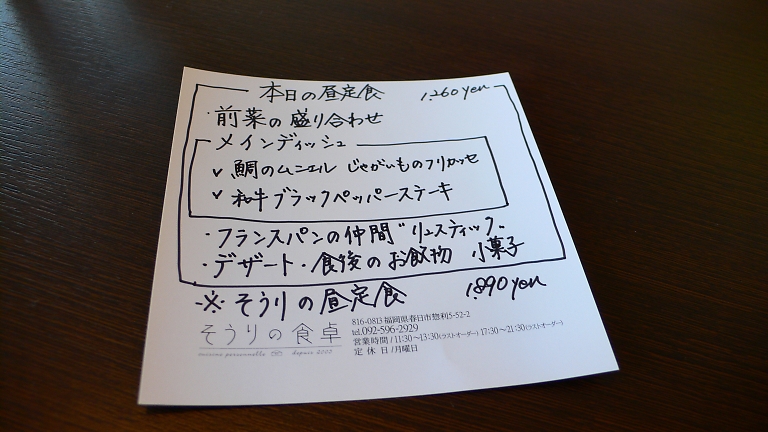 本日の昼定食 1,260yen
・前菜の盛り合わせ
メインディッシュ
✓ 鯛のムニエル じゃがいものフリカッセ
✓ 和牛ブラックペッパーステーキ
・フランスパンの仲間"リュスティック"
・デザート・食後のお飲物 小菓子
※そうりの昼定食 1,890yen
そうりの食卓
cuisine personnelle depuis 2002
816-0813 福岡県春日市惣利5-52-2
tel.092-596-2929
営業時間/11:30〜13:30(ラストオーダー) 17:30〜21:30(ラストオーダー)
定休日/月曜日